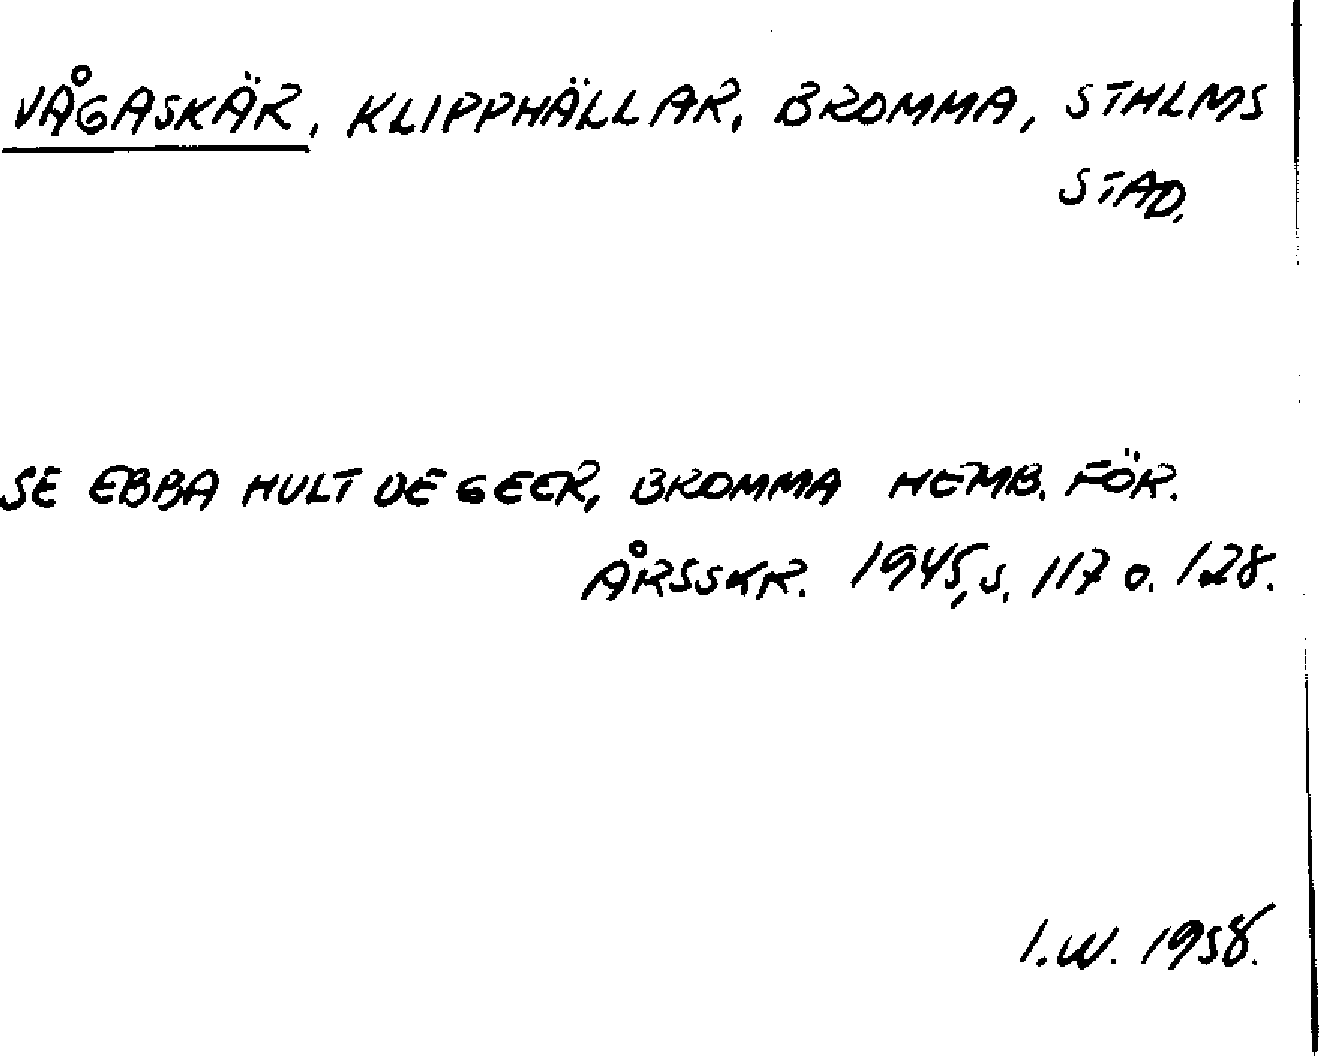 VÅGASKÄR, KLIPPHÄLLAR, BROMMA, STHLMS
STAD.
SE EBBA HULT DE GEER, BROMMA HEMB. FÖR.
ÅRSSKR. 1945, S. 117 o. 128.
I.W. 1958.